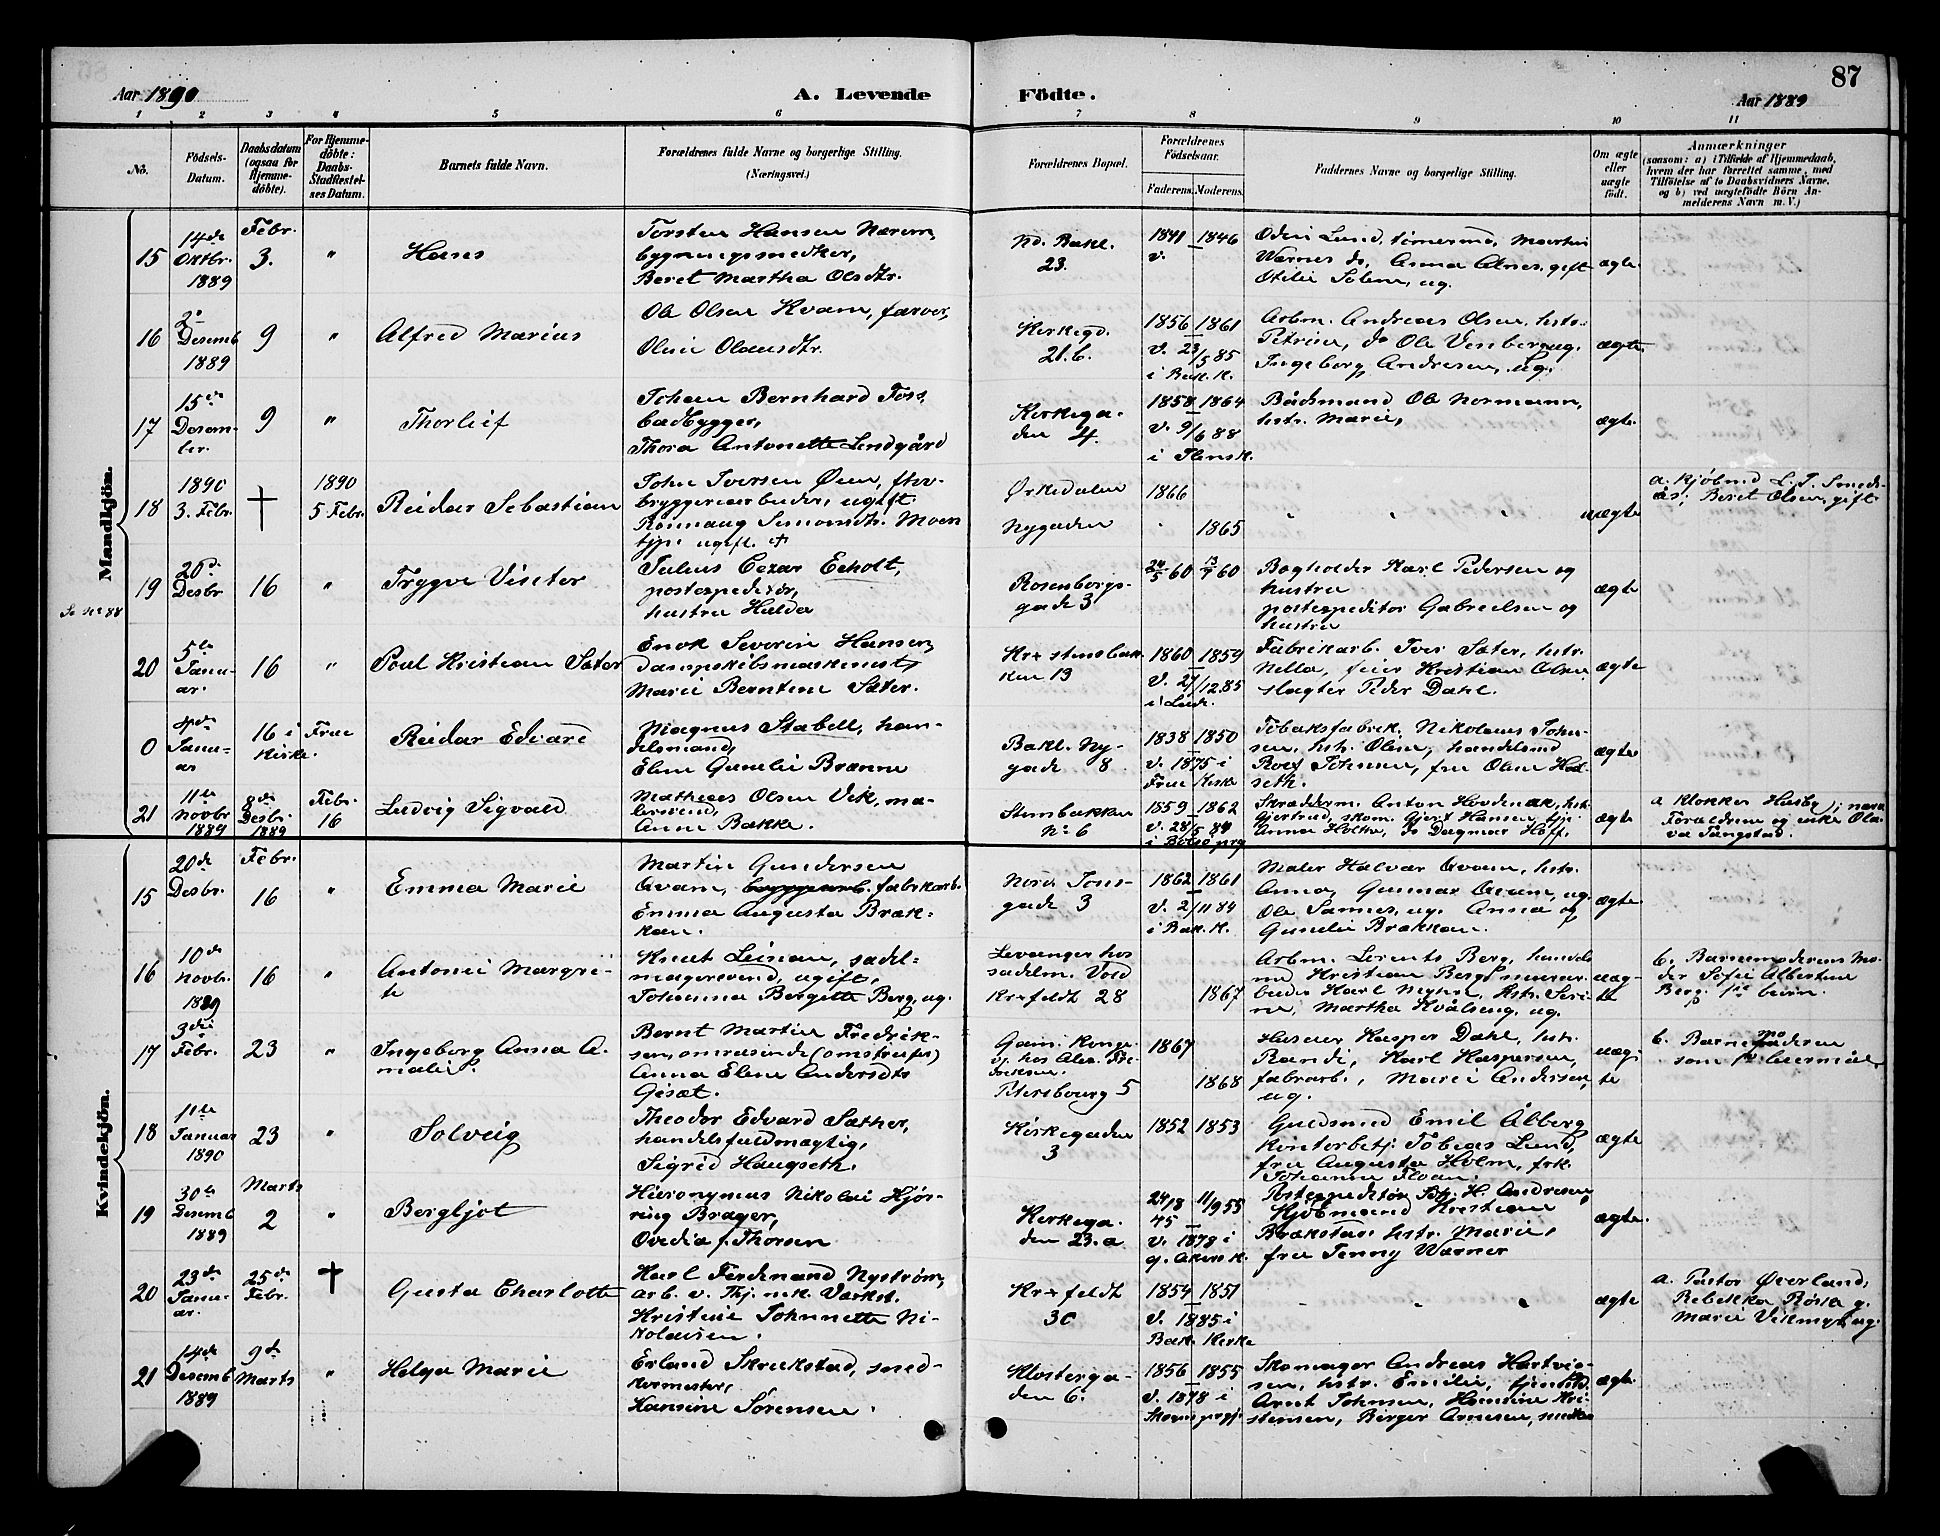 87
Aar 1890
A. Levende
Födte.
Aar 1889
1 2 3 4 5 6 7 8 9 10 11
No.
Födsels-
Datum.
Daabsdatum
(ogsaa for
Hjemme-
döbte).
For Hjemme-
döbte:
Daabs-
Stadfæstel-
ses Datum.
Barnets fulde Navn.
Forældrenes fulde Navne og borgerlige Stilling.
(Næringsvei.)
Forældrenes Bopæl.
Forældrenes
Födselsaar.
Faderens. Moderens.
Faddernes Navne og borgerlige Stilling.
Om ægte
eller
uægte
født.
Anmærkninger
(saasom: a) i Tilfælde af Hjemmedaab,
hvem der har forrettet samme, med
Tilföielse af to Daabsvidners Navne,
og b) ved uægtefödte Börn An-
melderens Navn m. V.)
Mandkjön.
15
14de
Oktbr.
1889
Febr.
3.
"
Hans
Torsten Hansen Narem,
bygningssnedker,
Beret Martha Olsdtr.
Nd. Bakl.
23.
1841 1846
v.
Odin Lund, tömermd,
Warnes do, Anna Alnes, gift
Otilie Solem, ug.
ægte
16
Desemb
1889
9
"
Alfred Marius
Ole Olsen Kvam, farver,
Oline Olausdtr.
Kirkegd.
21.b.
1856 1861
v. 23/5 85
i Bak. K.
Arbm. Andreas Olsen, hstr.
Petrine, do Ole Vinberg ug.
Ingeborg Andresen, ug.
ægte
17
15de
Desem-
ber.
9
"
Thorleif
Johan Bernhard Foss,
baadbygger,
Thora Antonette Lundgård
Kirkega-
den 4.
1858 1864
v. 9/6 88
i Ilensk.
Bådsmand Ole Normann,
hstr. Marie,
ægte
18
1890
3. Febr.
†
1890
5 Febr.
Reidar Sebastian
John Iversen Øien,
bryggeriarbeider, ugift
Rönnaug Simonsdtr. Moen
tjp. ugift.
Ørkedalen
Nygaden
1866
1865
" " "
uægte
a. Kjöbmd L. T. Smeds-
ås; Beret Olsen, gift
19
Se No 88
20de
Desbr
16
"
Trygve Victor
Julius Cezar Eeholt,
postexpeditör,
hustru Hulda
Rosenborgs-
gade 3
24/5 60 13/7 60
Bogholder Karl Pedersen og
hustru
postexpeditor Gabrielsen og
hustru
ægte
20
5te
Janu-
ar.
16
"
Poul Kristian Sater
Enok Severin Hansen,
dampskibsmaskinist,
Marie Berntine Sater.
Kr+stensbak-
ken 13
1860 1859
v. 27/12 85
i Lade.
Fabrikarb. Iver Sater, hstr.
Nella, feier Kristian Olsen
slagter Peder Dahl.
ægte
0
4de
Janu-
ar
16 i Frue
Kirke.
Reidar Edvard
Magnus Stabell, han-
delsmand,
Elen Gunelie Brænne
Bakl. Ny-
gade 8
1838 1850
v. 1875 i
Frue Kirke
Tobaksfabrik. Nikolaus Johan-
sen, hstr. Oline, handelsmd
Rolf Johnsen, fru Oline Hal-
seth.
ægte
21
11te
Novbr
1889
8de
Desbr.
1889
Febr.
16
Ludvig Sigvald
Mathias Olsen Vik, ma-
lersvend,
Anne Bakke.
Stensbakken
No 6
1859 1862
v. 28/5 84
i Bolsö prg
Skrædderm. Anton Hovdenak, hst.
Gjertrud, skom. Gjert Hansen, tjp.
Anna Holthe, do Dagmar Hoff.
ægte
a Klokker Husby, i nærv.
Forældrene og enke Ola-
va Tangstad.
Kvindekjön.
15
20de
Desbr.
Febr.
16
"
Emma Marie
Martin Gundersen
Avam, fabrikarb.
Emma Augusta Bræk-
kan.
Nord. Jons-
gade 3
1862 1861
v. 2/11 84
i Bak. K.
Maler Halvar Avam, hstr.
Anna, Gunnar Avam, ug.
Ole Sannes, ug. Anna og
Gunelie Brækkan.
ægte
16
10de
Novbr.
1889
16
"
Antonie Margre-
te
Knut Leinan, sadel-
magersvend, ugift,
Johanna Bergitte Berg, ug.
Levanger hos
sadelm. Vold
Kr+feldt 28
1867
Arbm. Lorents Berg, handels-
md Kristian Berg, murar-
beider Karl Myhre, hstr. Seri-
ne, Martha Kvålseng, ug.
uæg-
te
b. Barnemoderens Mo-
der Sofie Albertine
Berg. 1ste barn.
17
3die
Febr.
23
"
Ingeborg Anna A-
malie.
Bernt Martin Fredrik-
sen, omreisende (omstreifer)
Anna Elene Andersdtr
Gisæt.
Gam. Konge-
v. hos Alex. Fre-
driksen.
Petersbourg 5
1867
1868
Huseier Kasper Dahl, hstr.
Randi, Karl Kaspersen,
fabrarb., Marie Andersen,
ug.
uæg-
te
b. Barnemoderen
som 1ste leiermål.
18
11te
Januar
1890
23
"
Solveig
Theodor Edvard Sæther,
handelsfuldmægtig,
Sigrid Haugseth.
Kirkegaden
3
1852 1853
Guldsmed Emil Ålberg
kontorbetj. Tobias Lund,
fru Augusta Holm, frk.
Johanne Floan.
ægte
19
30te
Desemb
1889
Marts
2
"
Bergljot
Hieronymus Nikolai Hjör-
ring Brager,
Ovedia f. Thorsen
Kirkega-
den 23.a
24/8 45 11/9 55
v. 1878 i
g. Akersk.
Postexpeditör Joh. H. Andresen
Kjöbmand Kristian
Brækstad hstr. Marie,
fru Jenny Warner
ægte.
20
23de
Janu-
ar.
25de
Febr.
†
Gusta Charlotte
Karl Ferdinand Nyström,
arb. v. Thj. mk. Værkst.
Kristine Johnnette Ni-
kolaisen.
Kr+feldt
30
1854 1851
v. 1885 i
Bak. Kirke
" " "
ægte
a. Pastor Överland,
Rebekka Röske g.
Marie Vikmyr, ug.
21
14de
Desemb
1889
9de
Marts
"
Helga Marie
Erland Skrukstad, sned-
kermester,
Hansine Sörensen.
Klosterga-
den 6.
1856 1855
v. 1878 i
Skogns prgj.
Skomager Andreas Hartvig-
sen, hstr. Emilie, tjenestd.
Arnt Johnsen, Hansine Kri-
stensen, Birger Arnesen, snedker
ægte